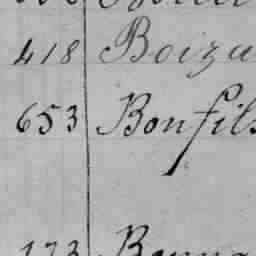 418 Boiza
653 Bonfils
173